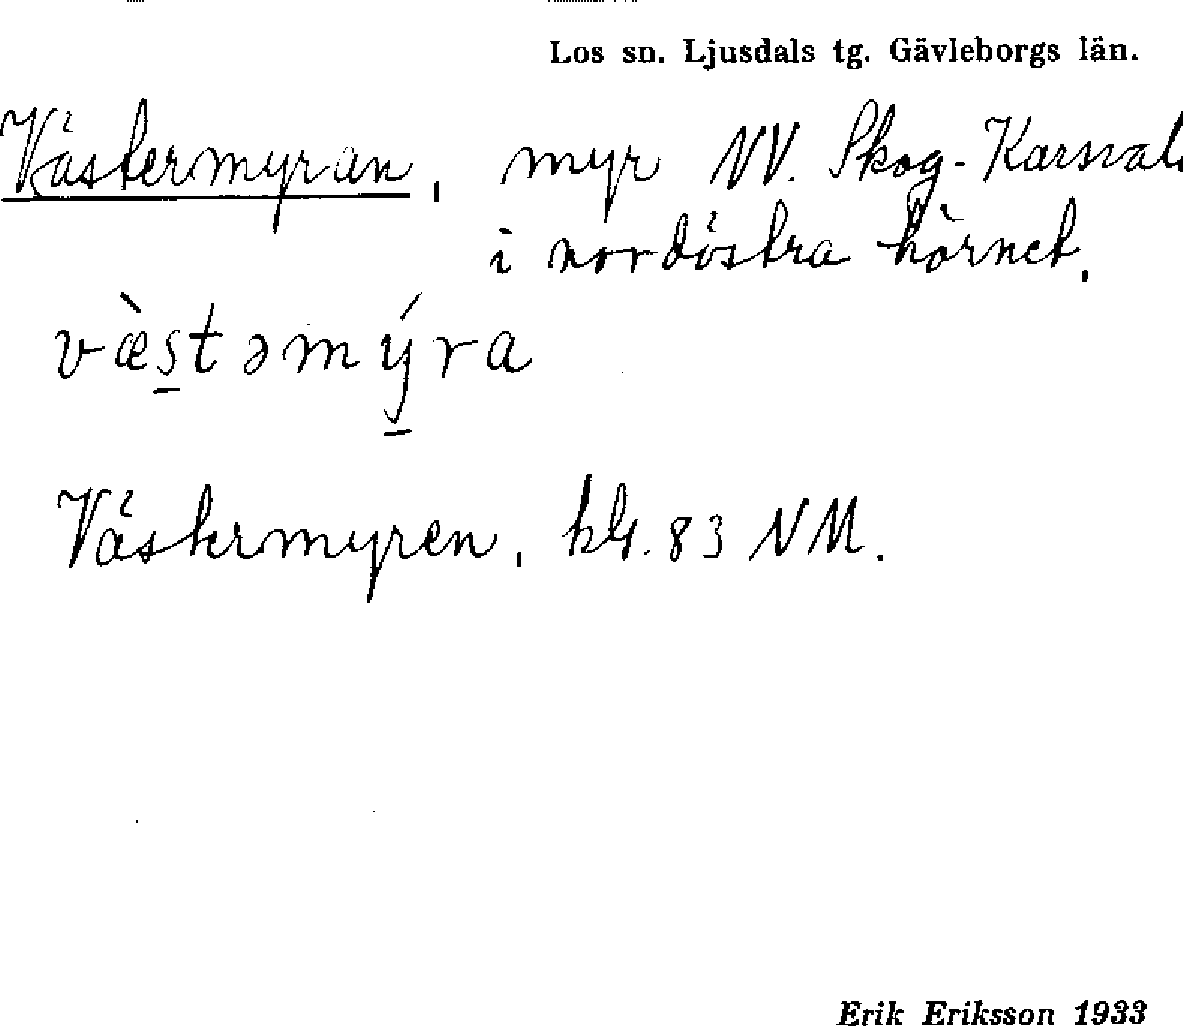 Los sn. Ljusdals tg. Gävleborgs län.
Västermyran, myr NV. Skog-Karsval
i nordöstra hörnet.
væ̀s̱təmý̱ra
Västermyren, kbl. 83 NM.
Erik Eriksson 1933